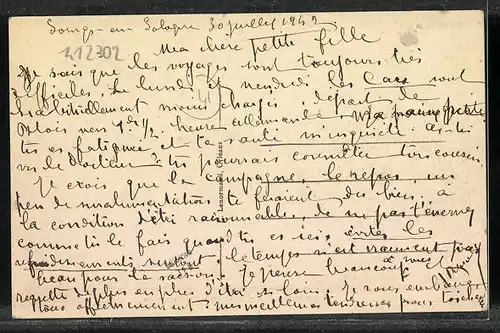 Soings-en-Sologne 30 juillet 1942
412302
Ma chère petite fille
Je sais que les voyages sont toujours très
difficiles. Le lundi et vendredi les Cars sont
habituellement moins chargés, départ de
Blois vers 7h 1/2, heure allemande. Ma pauvre petite
tu es fatiguée et ta santé m'inquiète. As-tu
vu le Docteur? tu pourrais consulter
Je crois que la campagne, le repos, un
peu de suralimentation te feraient du bien, à
la condition d'être raisonnable, de ne pas t'énerver
comme tu le fais quand tu es ici, évites les
refroidissements surtout, le temps n'est vraiment pas
beau pour la saison. Je pense beaucoup à vous et
regrette de plus en plus d'être si loin. Je vous embrasse
tous affectueusement mes meilleures tendresses pour toi
Lenormand, Orléans